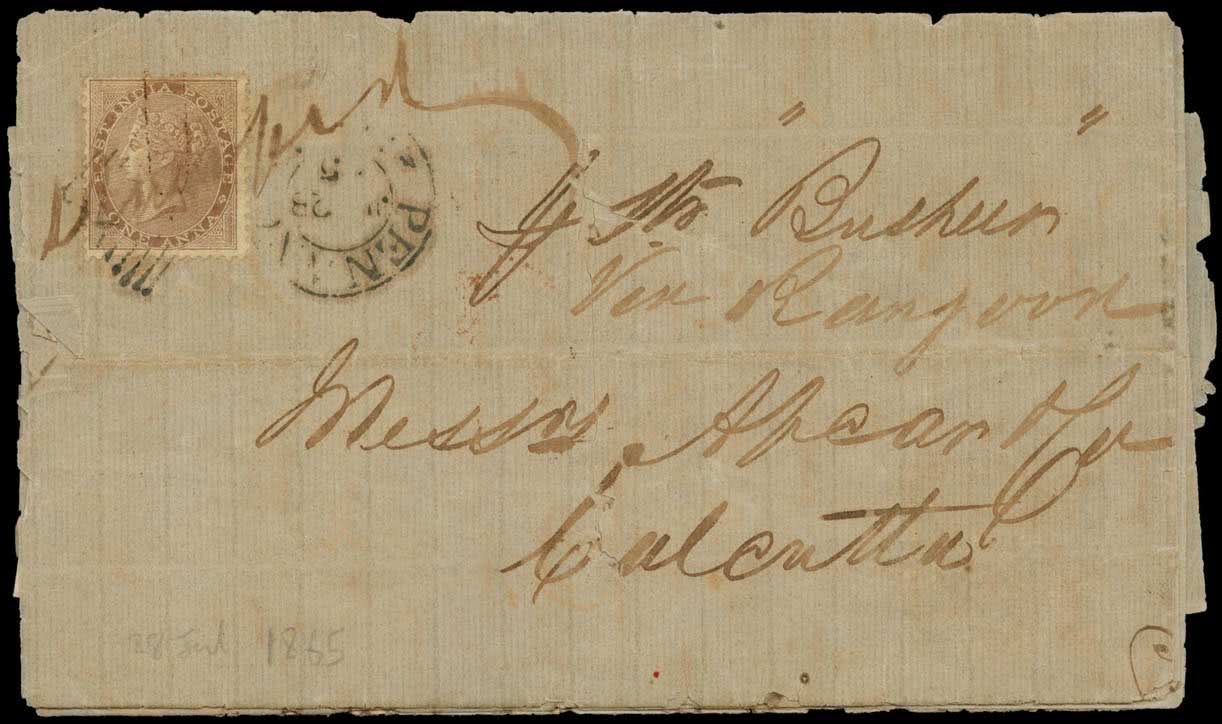 EAST INDIA POSTAGE
ONE ANNA
Stampd
PENA
28
5
" "
p Str Busheer
Via Rangoon
Messrs Apcar & Co
Calcutta
28 Jul 1865